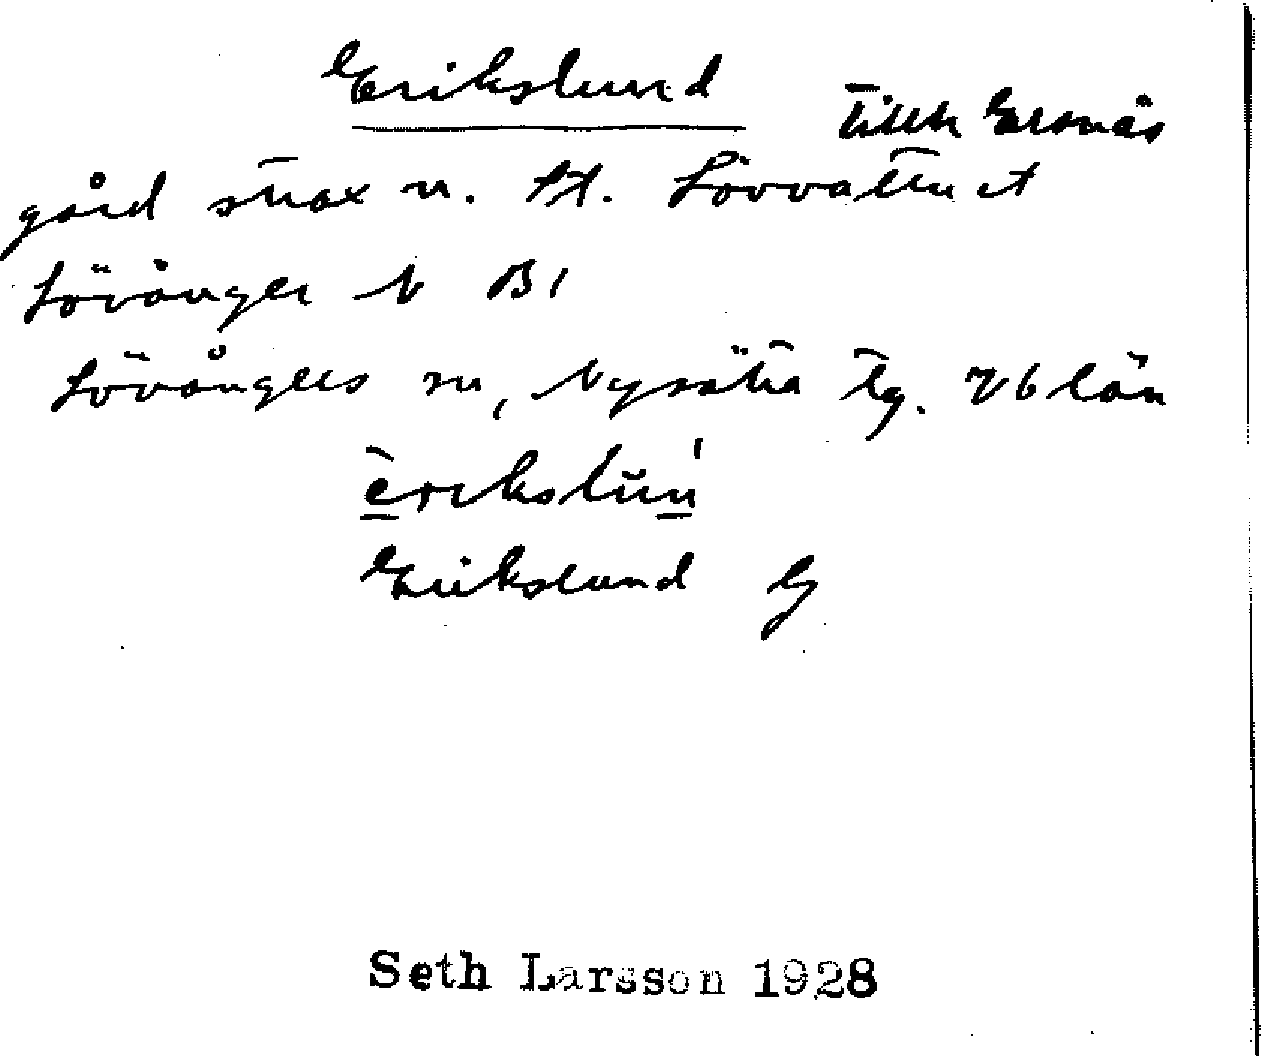 Erikslund
tillh Gersnäs
gård strax n. St. Lövvattnet
Lövånger N B1
Lövångers sn, Nysätra tg. Vb län
èrikslŭn'
Erikslund G
Seth Larsson 1928